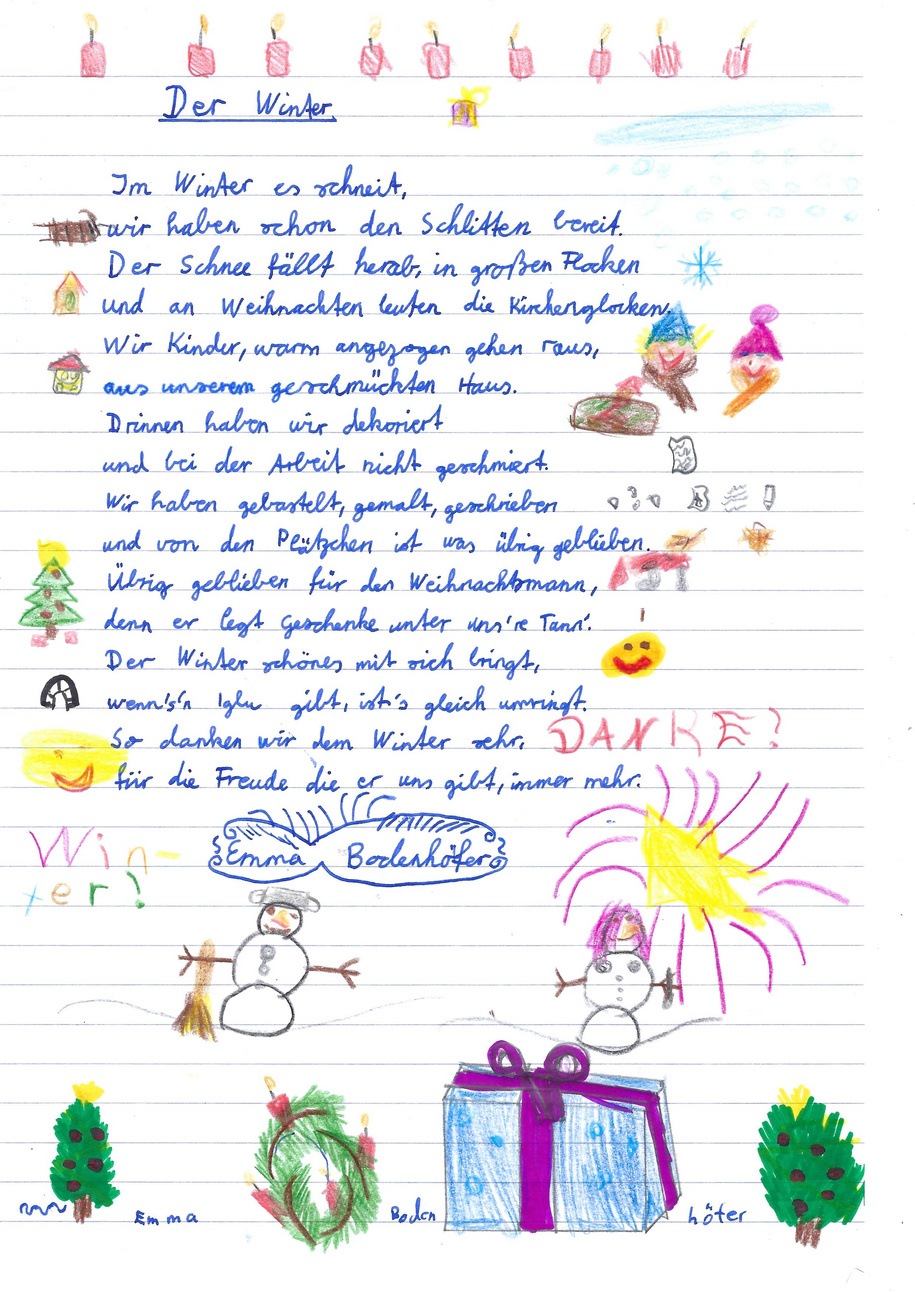 Der Winter
Im Winter es schneit,
wir haben schon den Schlitten bereit.
Der Schnee fällt herab, in großen Flocken
und an Weihnachten leuten die Kirchenglocken.
Wir Kinder, warm angezogen gehen raus,
aus unserem geschmückten Haus.
Drinnen haben wir dekoriert
und bei der Arbeit nicht geschmiert.
Wir haben gebastelt, gemalt, geschrieben
und von den Plätzchen ist was übrig geblieben.
Übrig geblieben für den Weihnachtsmann,
denn er legt Geschenke unter uns're Tann'.
Der Winter schönes mit sich bringt,
wenn's'n Iglu gibt, ist's gleich umringt.
So danken wir dem Winter sehr,
für die Freude die er uns gibt, immer mehr.
DANKE?
Win-
ter!
Emma Bodenhöfer
Emma Boden höfer